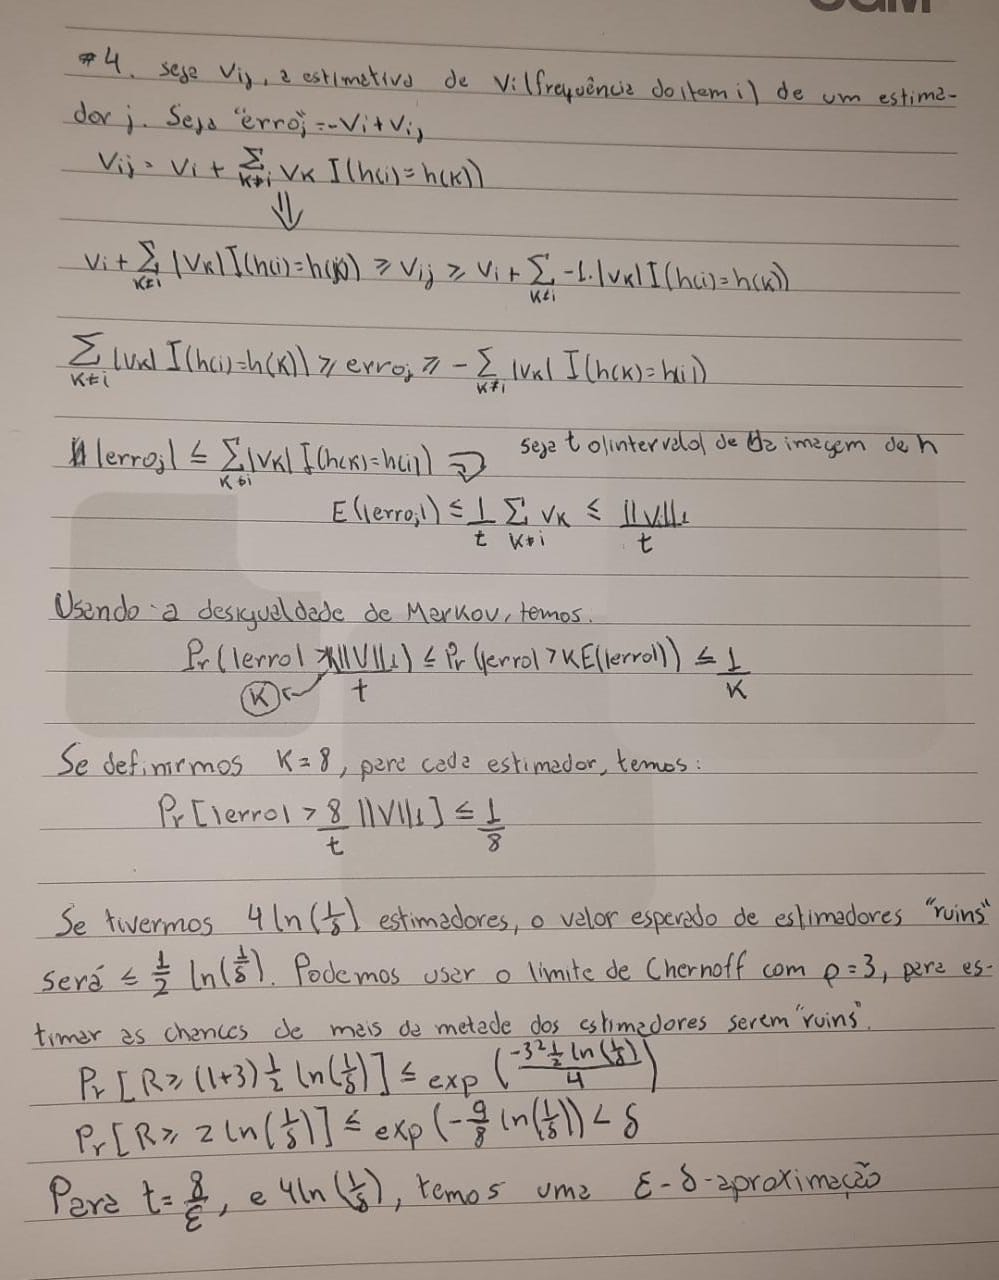 #4. seja Vij, a estimativa de Vi(frequência do item i) de um estima-
dor j. Seja "erroj" = -Vi+Vij
Vij = Vi + Σ_{K≠i} VK I(h(i)=h(K))
⇓
Vi + Σ_{K≠i} |VK| I(h(i)=h(K)) ≥ Vij ≥ Vi + Σ_{K≠i} -1.|VK| I(h(i)=h(K))
Σ_{K≠i} |VK| I(h(i)=h(K)) ≥ erroj ≥ - Σ_{K≠i} |VK| I(h(K)=h(i))
|erroj| ≤ Σ_{K≠i} |VK| I(h(K)=h(i)) seja t o |intervalo| de da imagem de h
E(|erroj|) ≤ 1/t Σ_{K≠i} VK ≤ ||V||1/t
Usando a desigualdade de Markov, temos.
Pr(|erro| > K||V||1/t) ≤ Pr(|erro| > KE(|erro|)) ≤ 1/K
Se definirmos K=8, para cada estimador, temos:
Pr[|erro| > 8/t ||V||1] ≤ 1/8
Se tivermos 4 ln(1/δ) estimadores, o valor esperado de estimadores "ruins"
será ≤ 1/2 ln(1/δ). Podemos usar o limite de Chernoff com ρ=3, para es-
timar as chances de mais da metade dos estimadores serem "ruins".
Pr[R ≥ (1+3) 1/2 ln(1/δ)] ≤ exp(-3² 1/2 ln(1/δ)/4)
Pr[R ≥ 2 ln(1/δ)] ≤ exp(-9/8 ln(1/δ)) < δ
Para t = 8/ε, e 4ln(1/δ), temos uma ε-δ-aproximação